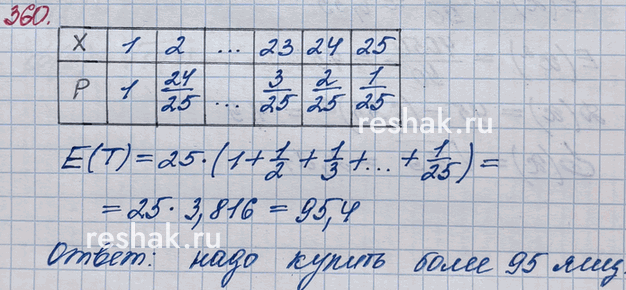 360.
X 1 2 ... 23 24 25
P 1 24/25 ... 3/25 2/25 1/25
reshak.ru
E(T) = 25·(1+1/2+1/3+...+1/25) =
= 25·3,816 = 95,4
reshak.ru
Ответ: надо купить более 95 яиц.